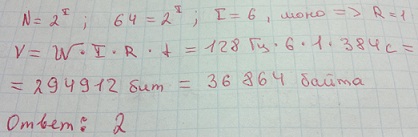 N = 2^I ; 64 = 2^I ; I = 6 , моно => R = 1
V = W · I · R · t = 128 Гц · 6 · 1 · 384 с =
= 294912 бит = 36864 байта
Ответ: 2